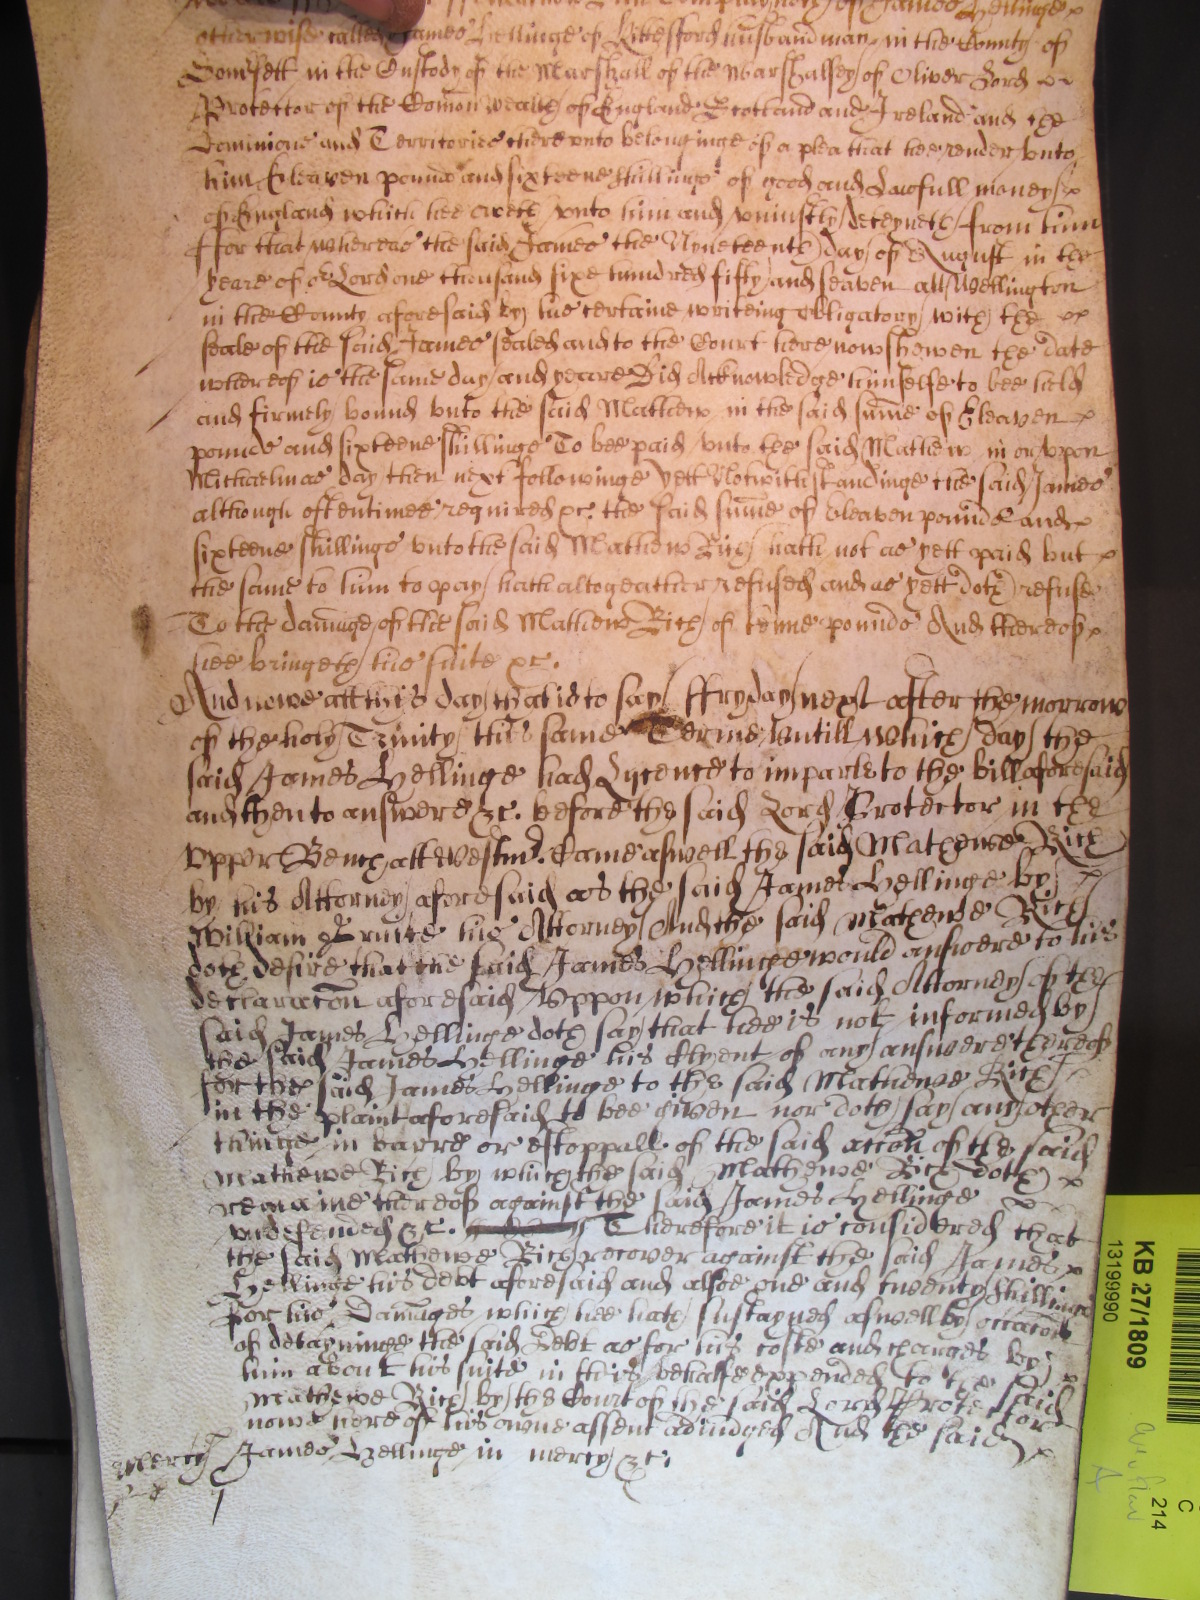 James Hellinge
otherwise called James Hellinge of Kittesford husbandman in the County of
Som̄sett in the Custody of the Marshall of the Marshalsey of Oliver Lord
Protector of the Com̄onwealth of England Scotland and Ireland and the
Dominions and Territories thereunto belonginge of a plea that hee render unto
him Eleaven pounds and sixteene shillings of good and Lawfull money
of England which hee oweth unto him and uniustly deteyneth from him
ffor that whereas the said James the Nyneteenth day of August in the
yeare of or Lord one thousand sixe hundred fifty and seaven att Wellington
in the County aforesaid by his certaine writeing obligatory with the
seale of the said James sealed and to the Court here now shewen the date
whereof is the same day and yeare Did Acknowledge himselfe to bee held
and firmely bound unto the said Mathew in the said sum̄e of Eleaven
pounds and sixteene shillings To bee paid unto the said Mathew in or uppon
Michaelmas day then next followinge yett Notwithstandinge the said James
although oftentimes required &c. the said sum̄e of Eleaven pounds and
sixteene shillings unto the said Mathew Rich hath not as yett paid but
the same to him to pay hath altogeather refused and as yett doth refuse
To the dam̄age of the said Mathew Rich of tenne pounds And thereof
hee bringeth his suite &c.
And nowe att this day that is to say ffryday next after the morrow
of the holy Trinity this same Terme untill which day the
said James Hellinge had Lycence to imparle to the bill aforesaid
and then to answere &c. before the said Lord Protector in the
Upper Bench att Westmr. Came aswell the said Mathewe Rich
by his Attorney aforesaid as the said James Hellinge by
William his Attorney And the said Mathewe Rich
doth desire that the said James Hellinge would answere to his
declarac̄on aforesaid Uppon which the said Attorney of the
said James Hellinge doth say that hee is not informed by
the said James Hellinge his Clyent of any answere thereof
for the said James Hellinge to the said Mathewe Rich
in the plaint aforesaid to bee given nor doth say any other
thinge in barre or estoppall of the said acc̄on of the said
Mathewe Rich by which the said Mathewe Rich doth
remaine thereof against the said James Hellinge
undefended &c. Therefore it is considered that
the said Mathewe Rich recover against the said James
Hellinge his debt aforesaid and alsoe one and twenty shillings
for his Dam̄ages which hee hath sustayned aswell by occac̄on
of detayninge the said Debt as for his costs and charges by
him about his suite in this behalfe expended to the said
Mathewe Rich by the Court of the said Lord Protector
nowe here of his owne assent adiudged And the said
James Hellinge in mercy &c.
Mercy
KB 27/1809
13199990
C
214